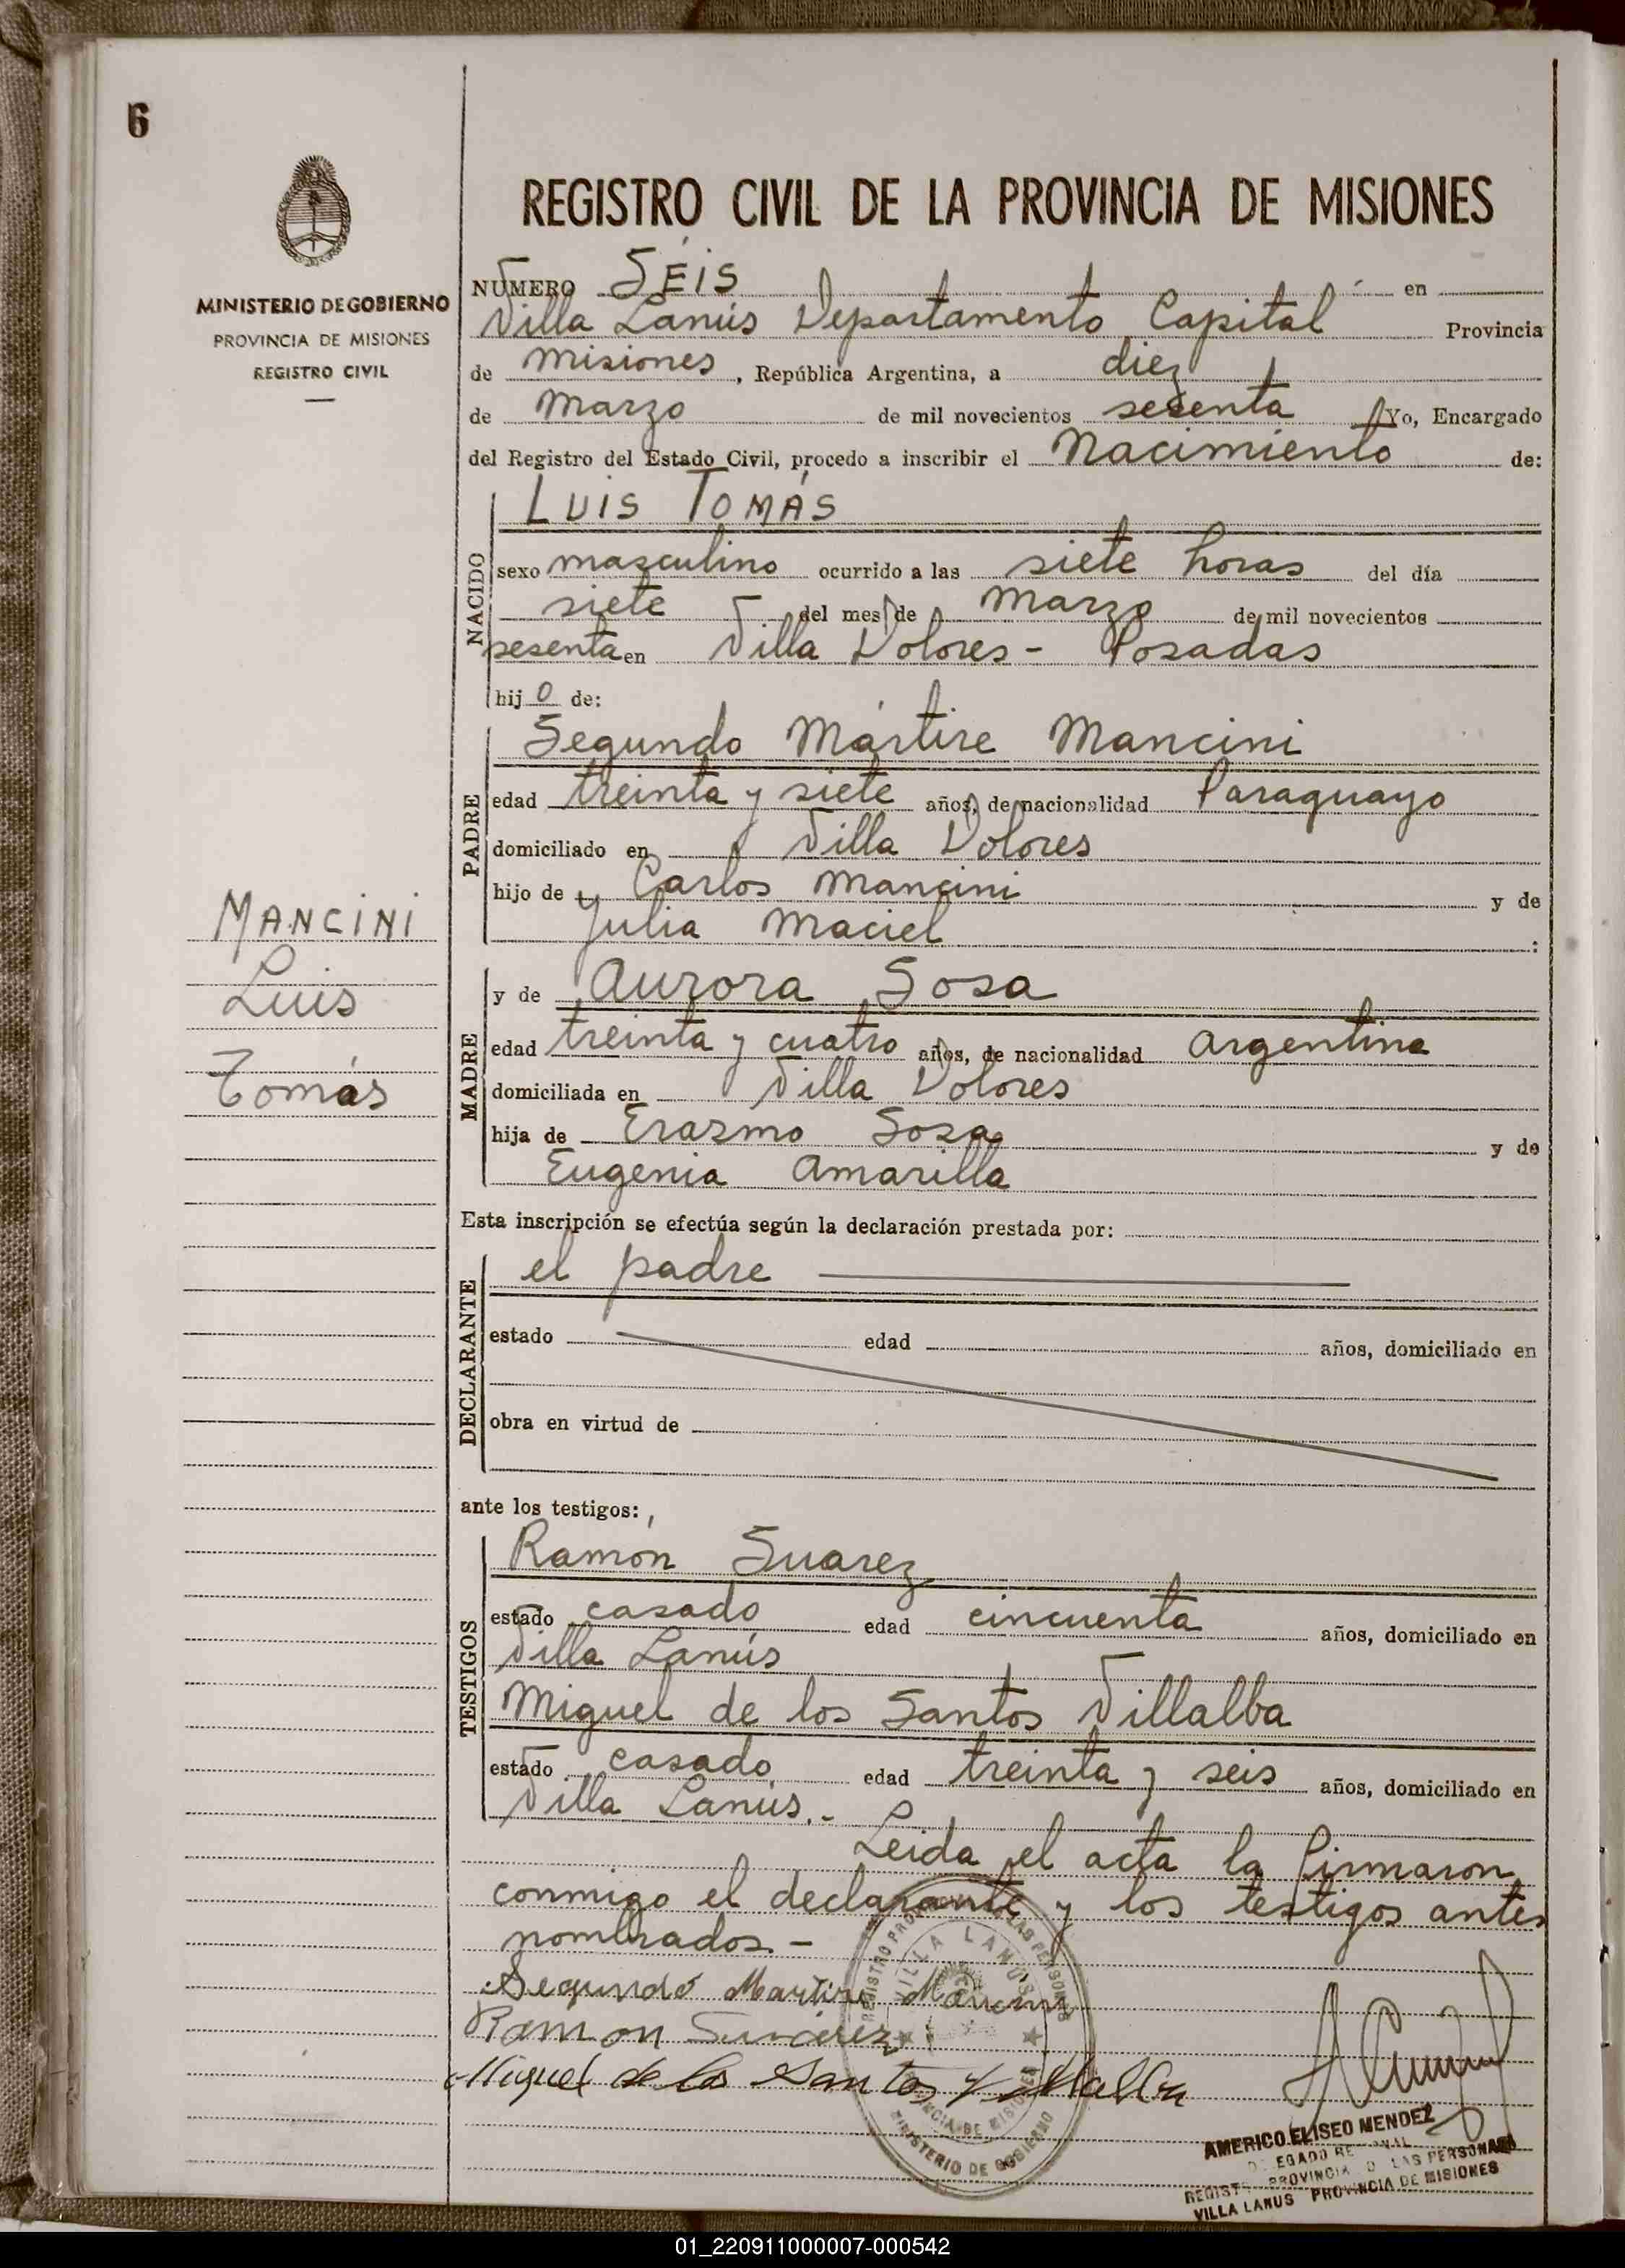 6
MINISTERIO DE GOBIERNO
PROVINCIA DE MISIONES
REGISTRO CIVIL
MANCINI
Luis
Tomás
REGISTRO CIVIL DE LA PROVINCIA DE MISIONES
NUMERO SÉIS en
Villa Lanús Departamento Capital Provincia
de Misiones, República Argentina, a diez
de Marzo de mil novecientos sesenta Yo, Encargado
del Registro del Estado Civil, procedo a inscribir el Nacimiento de:
NACIDO
LUIS TOMÁS
sexo masculino ocurrido a las siete horas del día
siete del mes de Marzo de mil novecientos
sesenta en Villa Dolores - Posadas
hijo de:
PADRE
Segundo Mártire Mancini
edad treinta y siete años, de nacionalidad Paraguayo
domiciliado en Villa Dolores
hijo de Carlos Mancini y de
Julia Maciel :
MADRE
y de Aurora Sosa
edad treinta y cuatro años, de nacionalidad Argentina
domiciliada en Villa Dolores
hija de Erazmo Sosa y de
Eugenia Amarilla
Esta inscripción se efectúa según la declaración prestada por:
DECLARANTE
el padre
estado edad años, domiciliado en
obra en virtud de
ante los testigos:
TESTIGOS
Ramón Suarez
estado casado edad cincuenta años, domiciliado en
Villa Lanús
Miguel de los Santos Villalba
estado casado edad treinta y seis años, domiciliado en
Villa Lanús.-
Leida el acta la firmaron
conmigo el declarante y los testigos antes
nombrados.-
Segundo Martire Mancini
Ramon Suarez
Miguel de los Santos Villalba
VILLA LANUS
MINISTERIO DE GOBIERNO
AMERICO ELISEO MENDEZ
LAS PERSONAS
VILLA LANUS PROVINCIA DE MISIONES
01_220911000007-000542